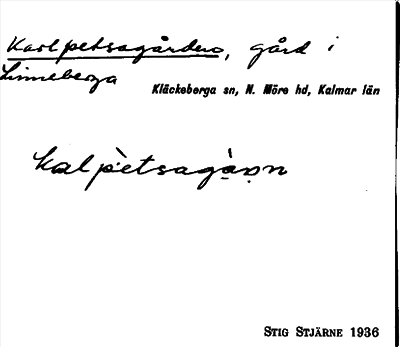 Karlpetsagården, gård i
Linneberga
Kläckeberga sn, N. Möre hd, Kalmar län
kal pètsagàṇn
STIG STJÄRNE 1936